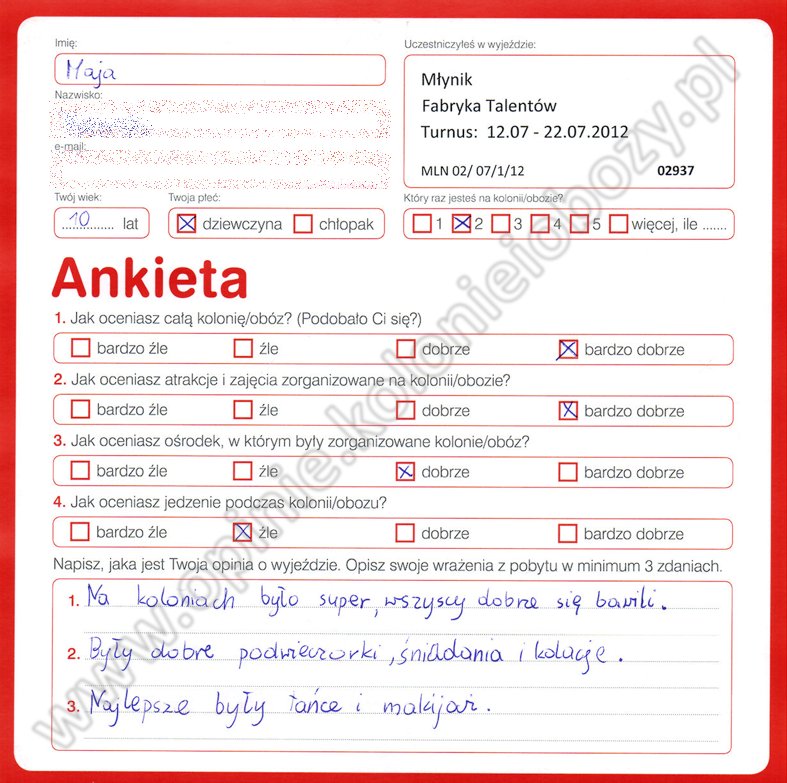 Imię:
Maja
Uczestniczyłeś w wyjeździe:
Młynik
Fabryka Talentów
Turnus: 12.07 - 22.07.2012
MLN 02/ 07/1/12 02937
Nazwisko:
e-mail:
Twój wiek:
10 lat
Twoja płeć:
dziewczyna chłopak
Który raz jesteś na kolonii/obozie?
1 2 3 4 5 więcej, ile .......
Ankieta
1. Jak oceniasz całą kolonię/obóz? (Podobało Ci się?)
bardzo źle źle dobrze bardzo dobrze
2. Jak oceniasz atrakcje i zajęcia zorganizowane na kolonii/obozie?
bardzo źle źle dobrze bardzo dobrze
3. Jak oceniasz ośrodek, w którym były zorganizowane kolonie/obóz?
bardzo źle źle dobrze bardzo dobrze
4. Jak oceniasz jedzenie podczas kolonii/obozu?
bardzo źle źle dobrze bardzo dobrze
Napisz, jaka jest Twoja opinia o wyjeździe. Opisz swoje wrażenia z pobytu w minimum 3 zdaniach.
1. Na koloniach było super, wszyscy dobrze się bawili.
2. Były dobre podwieczorki, śniadania i kolacje.
3. Najlepsze były tańce i makijaż.
www.opinie.kolonieiobozy.pl